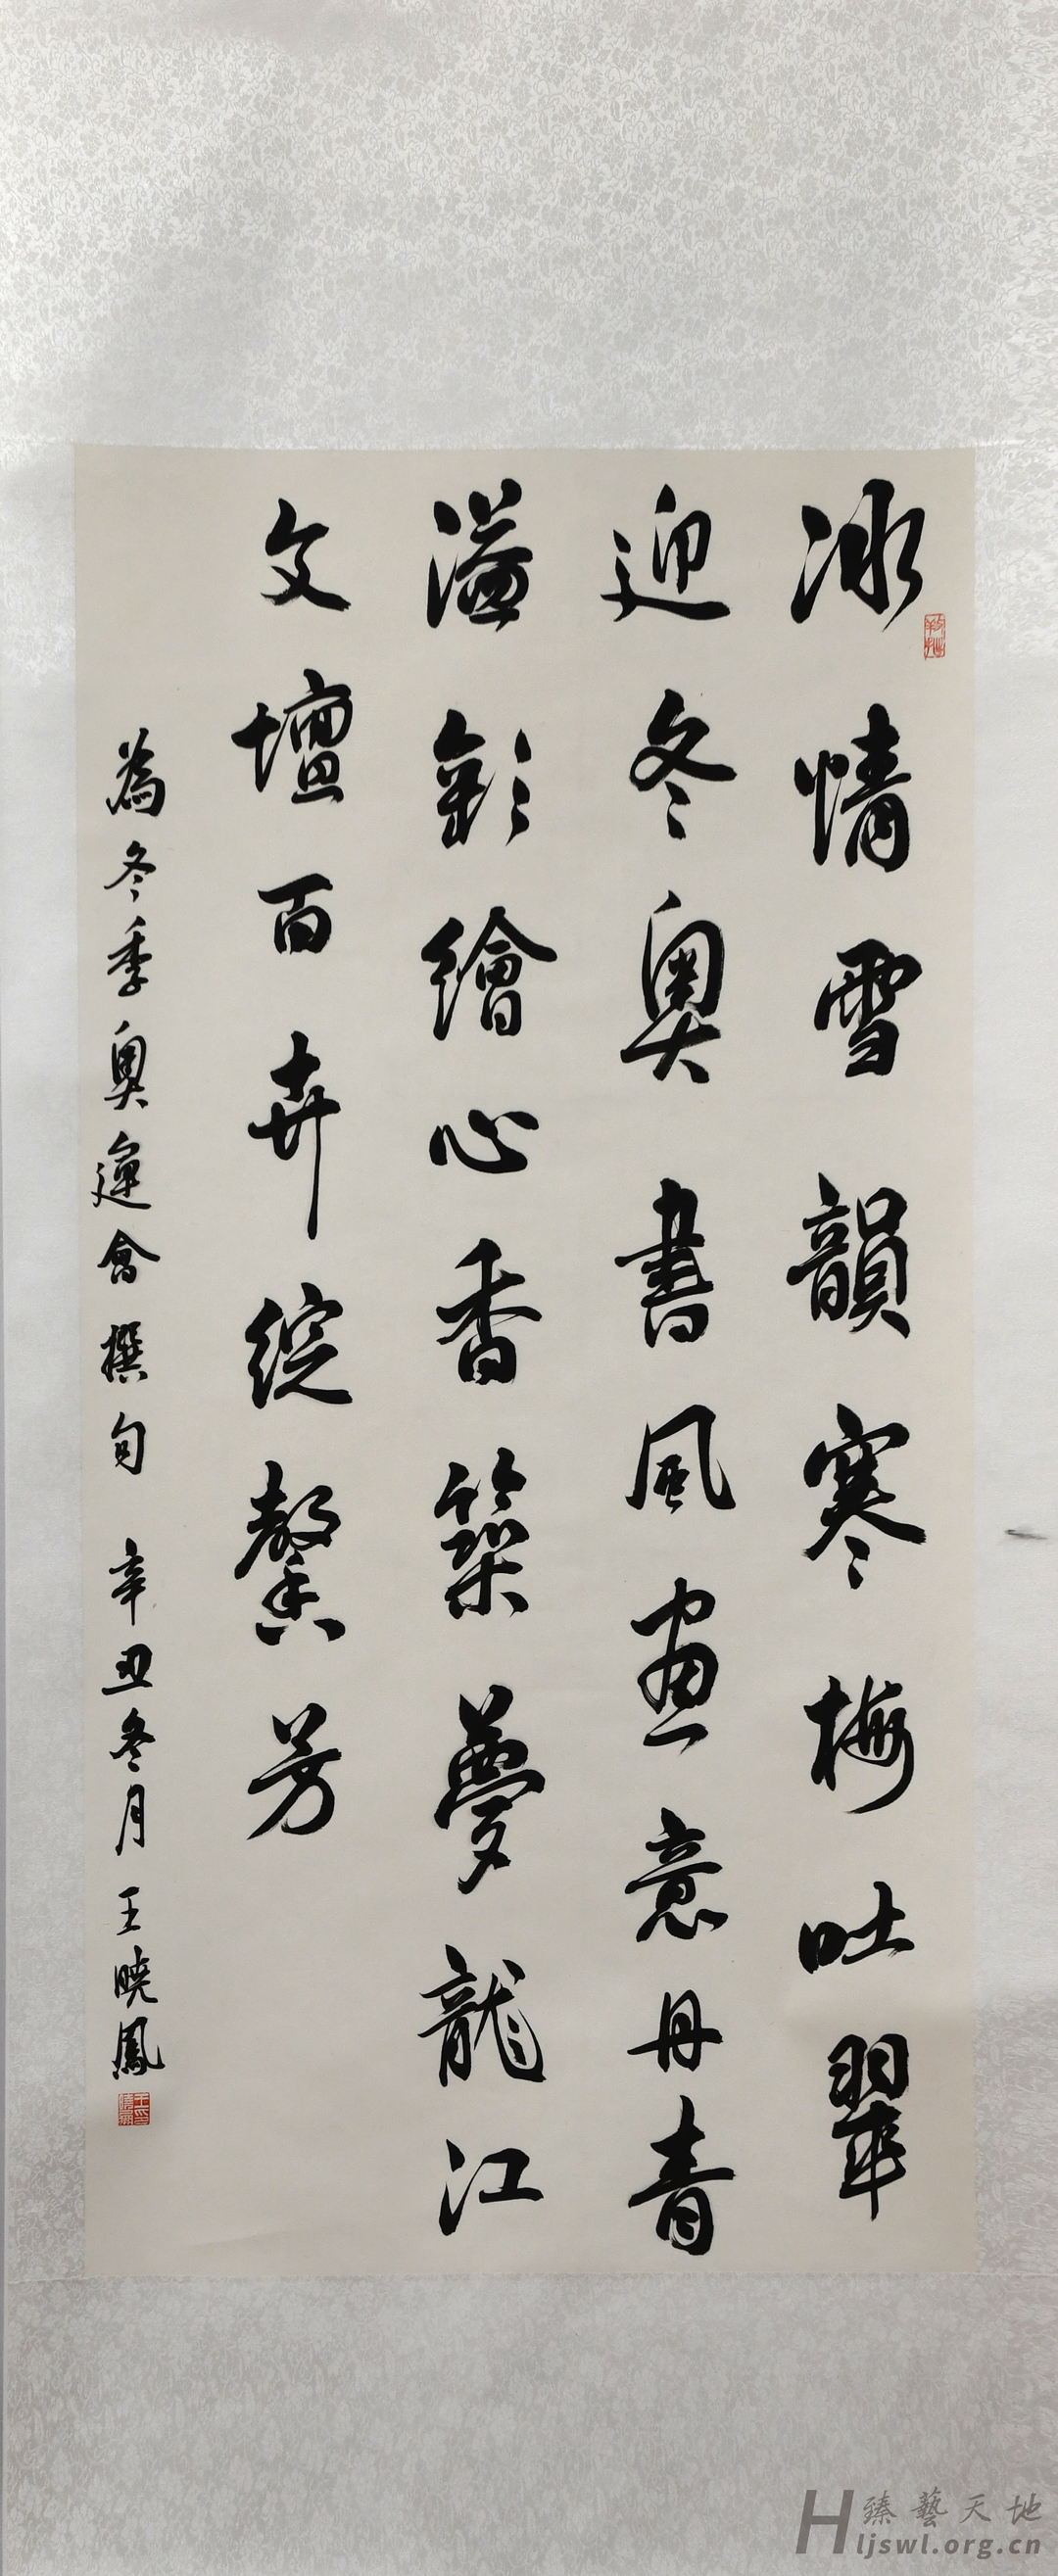 冰情雪韻寒梅吐翠
迎冬奧書風画意丹青
溢彩繪心香築夢龍江
文壇百卉綻馨芳
為冬季奧運會撰句 辛丑冬月 王曉鳳
臻藝天地
Hljswl.org.cn